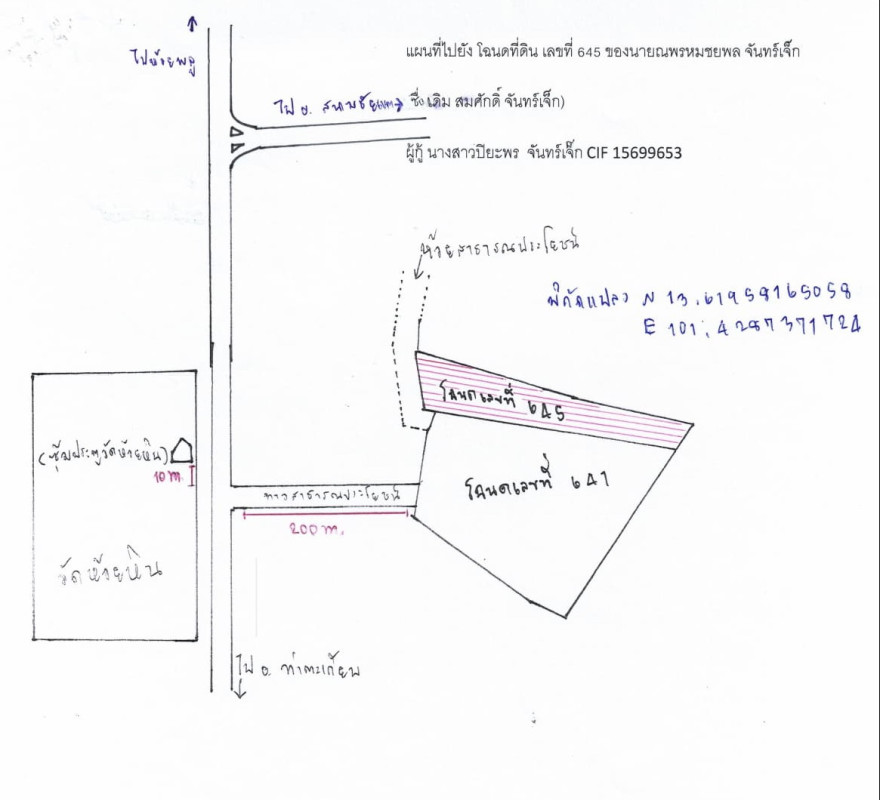 แผนที่ไปยัง โฉนดที่ดิน เลขที่ 645 ของนายณพรหมชยพล จันทร์เจ็ก
ไปห้วยพลู
ไป อ. สนามชัยเขต ชื่อ เดิม สมศักดิ์ จันทร์เจ็ก)
ผู้กู้ นางสาวปิยะพร จันทร์เจ็ก CIF 15699653
ห้วยสาธารณประโยชน์
พิกัดแปลง N 13.61958165058
E 101.4287371724
โฉนดเลขที่ 645
(ซุ้มประตูวัดห้วยหิน)
10 m.
โฉนดเลขที่ 641
ทางสาธารณประโยชน์
200 m.
วัดห้วยหิน
ไป อ. ท่าตะเกียบ